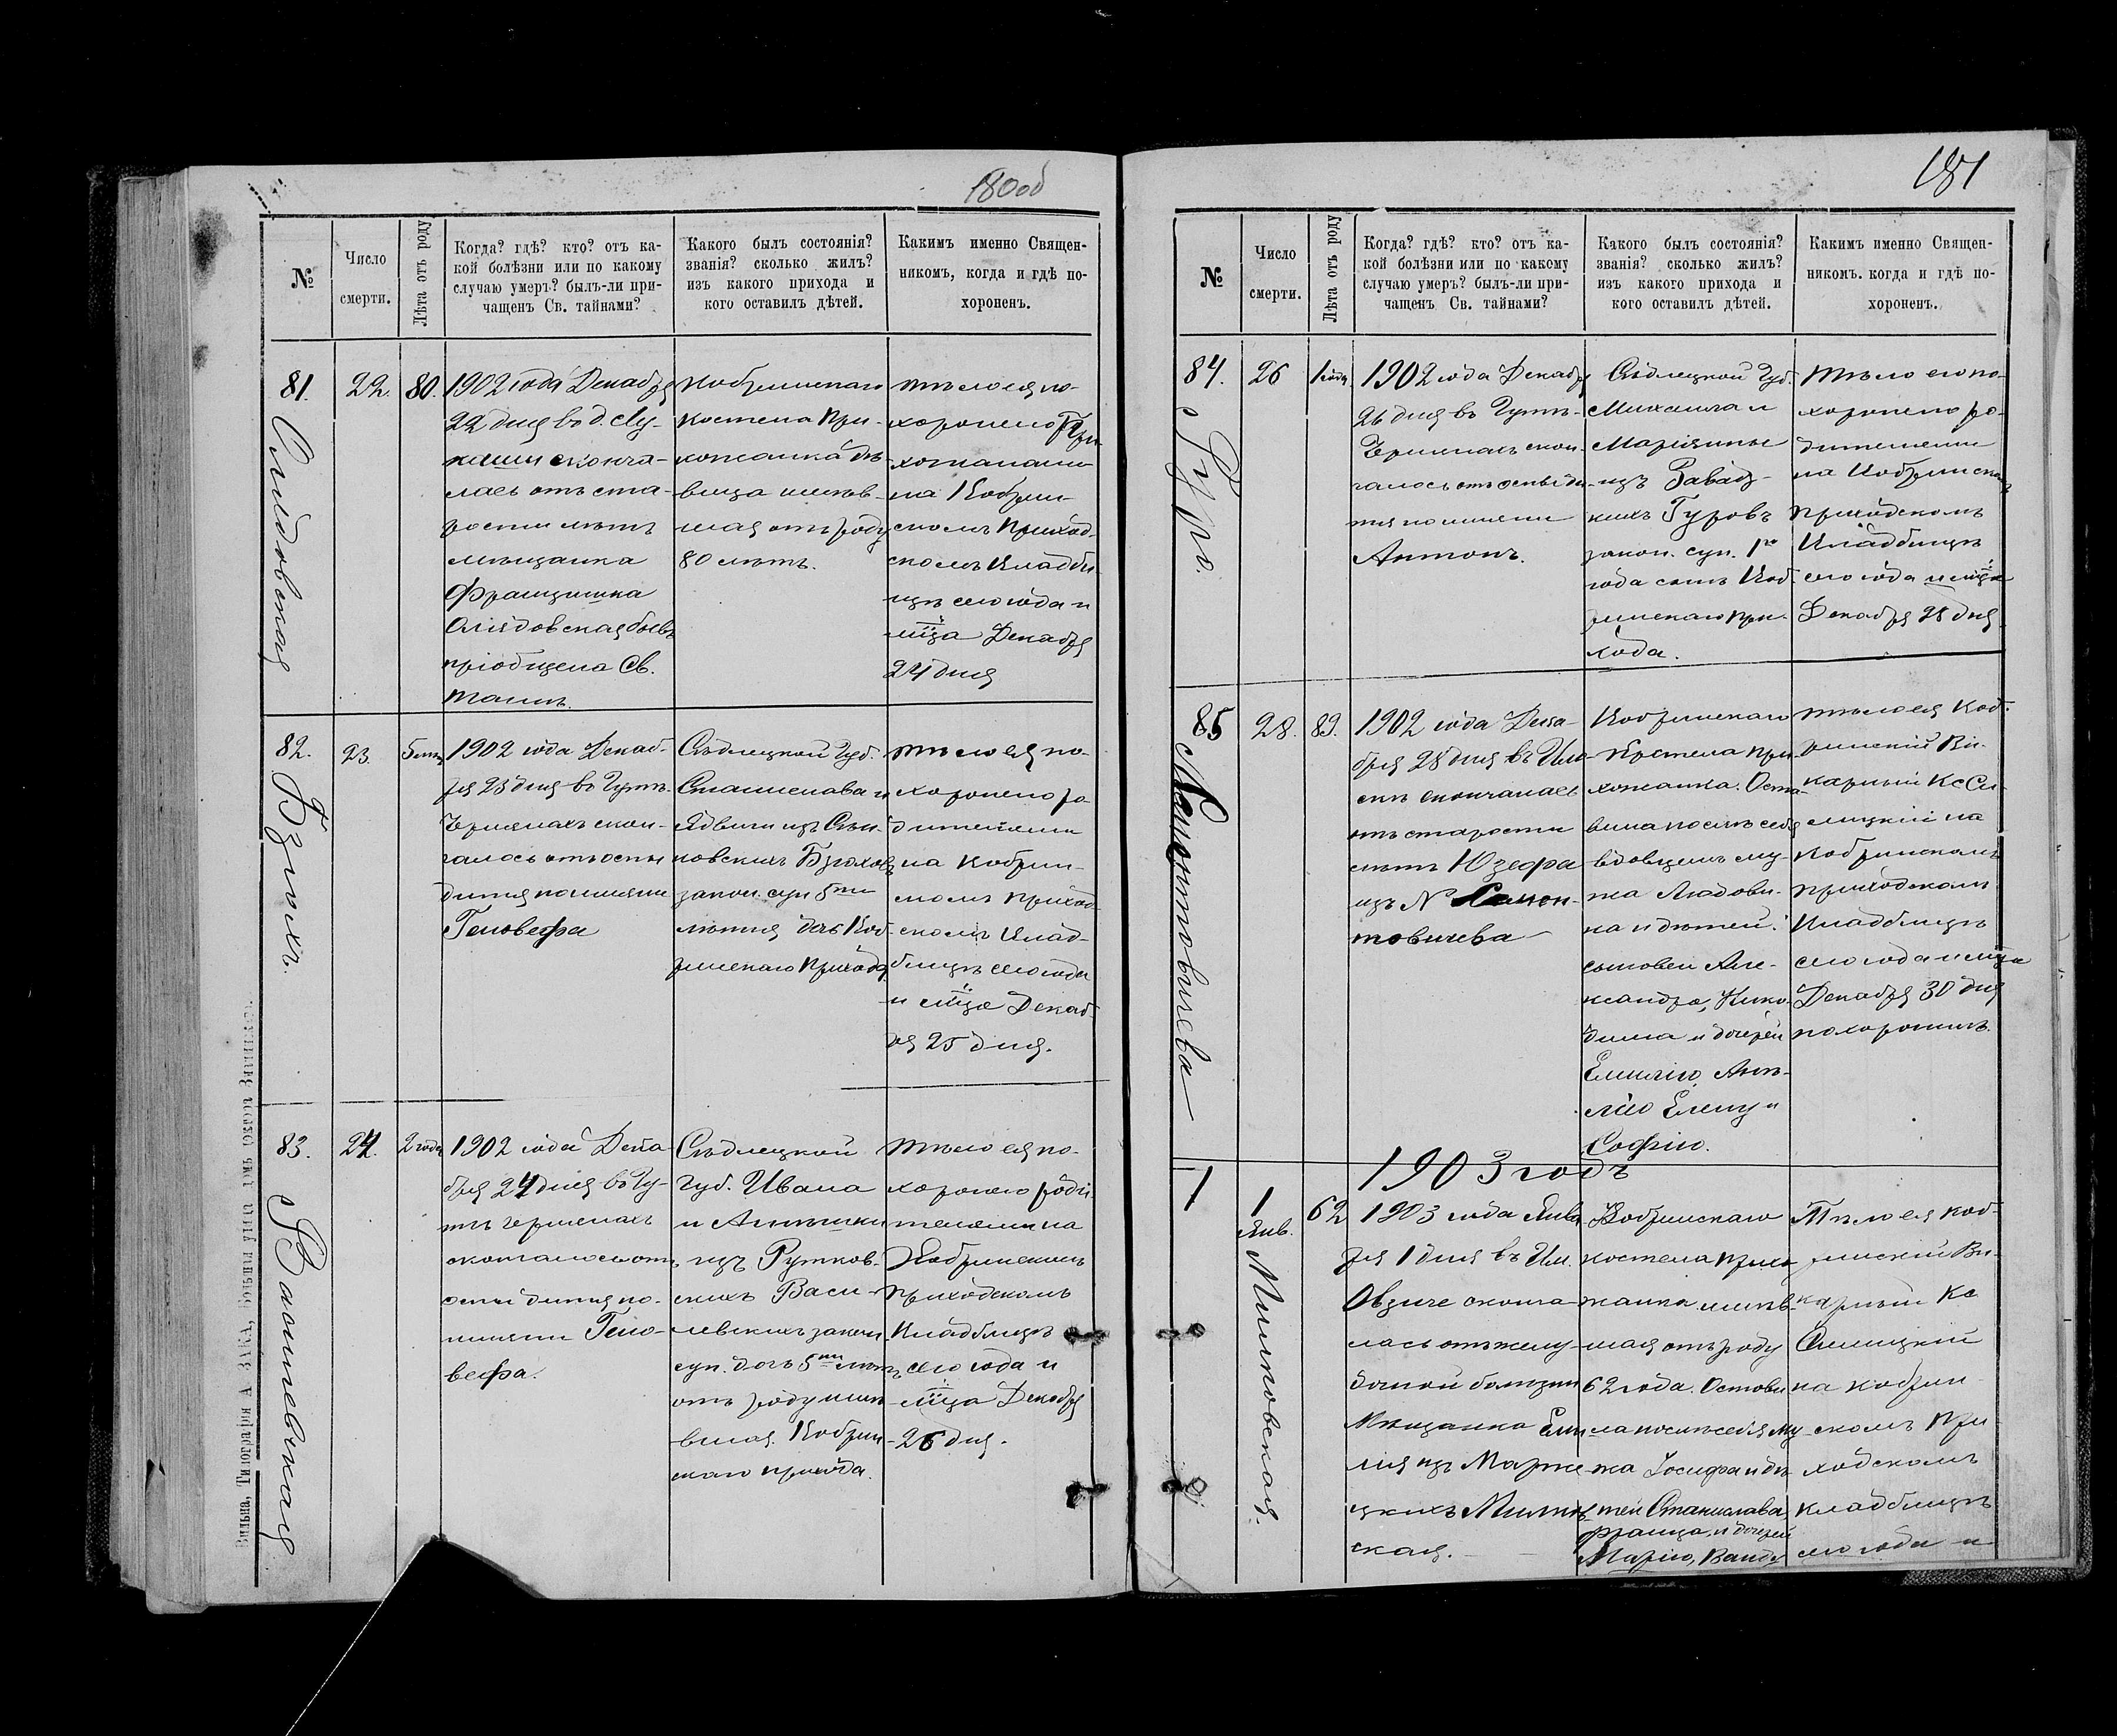 180об
№
Число
смерти.
Лѣта отъ роду
Когда? гдѣ? кто? отъ ка-
кой болѣзни или по какому
случаю умеръ? былъ-ли при-
чащенъ Св. тайнами?
Какого былъ состоянія?
званія? сколько жилъ?
изъ какого прихода и
кого оставилъ дѣтей.
Какимъ именно Священ-
никомъ, когда и гдѣ по-
хороненъ.
81.
22.
80.
1902 года Декабря
22 дня въ д. Лу-
сконча-
лась отъ ста-
рости лѣтъ
мѣщанка
Францишка
бывъ
пріобщена Св.
таинъ.
Кобринскаго
костела при-
хожанка дѣ-
вица имѣв-
шая отъ роду
80 лѣтъ.
тѣло ея по-
хоронено При-
хожанами
на Кобрин-
скомъ приход-
скомъ кладби-
щѣ сего года и
мца Декабря
24 дня
82.
Бзюхъ.
23.
5 лѣтъ
1902 года Декаб-
ря 23 дня въ Гутѣ-
Чернянахъ скон-
чалось отъ оспы
дитя по имени
Геновефа
Сѣдлецкой Губ.
Станислава и
Ядвиги изъ
Бзюховъ
закон. суп. 5ти
лѣтняя дочь Коб-
ринскаго прихода
тѣло ея по-
хоронено ро-
дителями
на Кобрин-
скомъ приход-
скомъ клад-
бищѣ сего года
и мца Декаб-
ря 25 дня.
83.
Василевская
24.
2 года
1902 года Дека-
бря 24 дня въ Гу-
тѣ Чернянахъ
скончалось отъ
оспы дитя по-
имени Гено-
вефа.
Сѣдлецкой
Губ. Ивана
и
изъ Рутков-
скихъ Васи-
левскихъ закон.
суп. дочь 5ти лѣтъ
отъ роду имѣ-
вшая. Кобрин-
скаго прихода.
тѣло ея по-
хоронено роди-
телями на
Кобринскомъ
приходскомъ
кладбищѣ
сего года и
мца Декабря
26 дня.
Вильна, Типографія А.
181
№
Число
смерти.
Лѣта отъ роду
Когда? гдѣ? кто? отъ ка-
кой болѣзни или по какому
случаю умеръ? былъ-ли при-
чащенъ Св. тайнами?
Какого былъ состоянія?
званія? сколько жилъ?
изъ какого прихода и
кого оставилъ дѣтей.
Какимъ именно Священ-
никомъ. когда и гдѣ по-
хороненъ.
84.
Гуро.
26
1 года
1902 года Декабр
26 дня въ Гутѣ-
Чернянахъ скон-
чалось отъ оспы ди-
тя по имени
Антонъ.
Сѣдлецкой Губ.
Михаила и
Маріянны
изъ Завад-
скихъ Гуровъ
закон. суп. 1го
года сынъ Коб-
ринскаго при-
хода.
тѣло его по-
хоронено ро-
дителями
на Кобринскомъ
приходскомъ
кладбищѣ
сего года и мца
Декабря 28 дня
85
28.
89.
1902 года Дека-
бря 28 дня въ
скончалась
отъ старости
лѣтъ Юзефа
изъ N
товичева
Кобринскаго
костела при-
хожанка. Оста-
вила послѣ себя
вдовцемъ му-
жа Людови-
ка и дѣтей:
сыновей Але-
ксандра, Нико-
дима и дочерей
Емилію, Анѣ-
лію Елену и
Софію.
тѣло ея Коб-
ринскій Ви-
карный Кс
на
Кобринскомъ
приходскомъ
кладбищѣ
сего года и мца
Декабря 30 дня
похоронилъ.
1903 годъ
1
Милковская.
1
Янв.
62
1903 года Янва-
ря 1 дня въ Им.
сконча-
лась отъ желу-
дочной болѣзни
Мѣщанка Еми-
лія изъ
цкихъ Милков-
ская.
Кобринскаго
костела прихо-
жанка имѣв-
шая отъ роду
62 года. Остави-
ла послѣ себя му-
жа Іосифа и дѣ-
тей Станислава,
Франца, и дочерей
Марію, Ванду
Тѣло ея Коб-
ринскій Ви-
карный Кс
на Кобрин-
скомъ при-
ходскомъ
кладбищѣ
сего года и